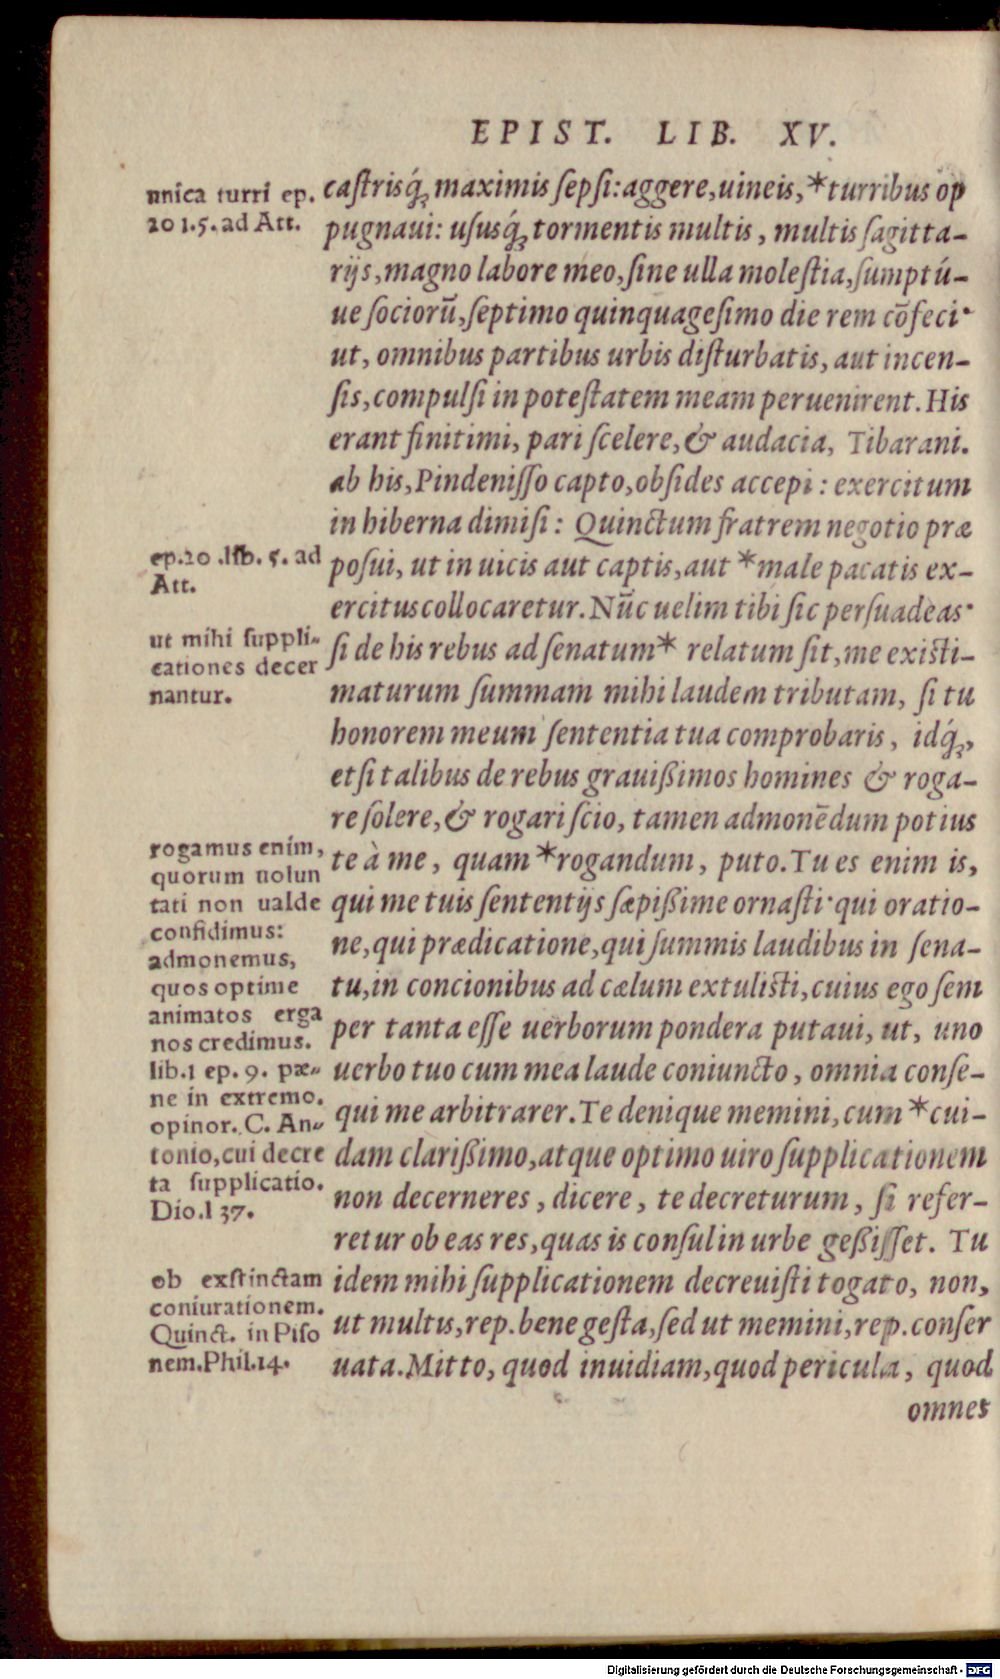 EPIST. LIB. XV.
castrisq́ꝫ maximis sepsi: aggere, uineis, *turribus op
pugnaui: ususq́ꝫ tormentis multis, multis sagitta-
rijs, magno labore meo, sine ulla molestia, sumptú-
ue sociorũ, septimo quinquagesimo die rem cõfeci·
ut, omnibus partibus urbis disturbatis, aut incen-
sis, compulsi in potestatem meam peruenirent. His
erant finitimi, pari scelere, & audacia, Tibarani.
ab his, Pindenisso capto, obsides accepi: exercitum
in hiberna dimisi: Quinctum fratrem negotio præ
posui, ut in uicis aut captis, aut *male pacatis ex-
ercitus collocaretur. Nũc uelim tibi sic persuadeas·
si de his rebus ad senatum* relatum sit, me existi-
maturum summam mihi laudem tributam, si tu
honorem meum sententia tua comprobaris, idq́ꝫ,
etsi talibus de rebus grauißimos homines & roga-
re solere, & rogari scio, tamen admonẽdum potius
te à me, quam *rogandum, puto. Tu es enim is,
qui me tuis sententijs sæpißime ornasti· qui oratio-
ne, qui prædicatione, qui summis laudibus in sena-
tu, in concionibus ad cælum extulisti, cuius ego sem
per tanta esse uerborum pondera putaui, ut, uno
uerbo tuo cum mea laude coniuncto, omnia conse-
qui me arbitrarer. Te denique memini, cum *cui-
dam clarißimo, atque optimo uiro supplicationem
non decerneres, dicere, te decreturum, si refer-
retur ob eas res, quas is consul in urbe geßisset. Tu
idem mihi supplicationem decreuisti togato, non,
ut multis, rep. bene gesta, sed ut memini, rep. conser
uata. Mitto, quod inuidiam, quod pericula, quod
omnes
unica turri ep.
20 l.5. ad Att.
ep.20 .lib. 5. ad
Att.
ut mihi suppli-
cationes decer
nantur.
rogamus enim,
quorum uolun
tati non ualde
confidimus:
admonemus,
quos optime
animatos erga
nos credimus.
lib.1 ep. 9. pæ-
ne in extremo.
opinor. C. An-
tonio, cui decre
ta supplicatio.
Dio.l 37.
ob exstinctam
coniurationem.
Quinct. in Piso
nem. Phil.14.
Digitalisierung gefördert durch die Deutsche Forschungsgemeinschaft - DFG